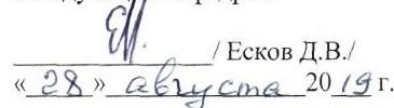 / Есков Д.В./
«28» августа 2019 г.